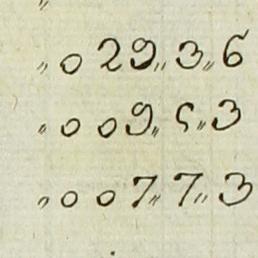 "
" 0 29 " 3 " 6
" 0 09 " 5 " 3
" 0 07 " 7 " 3